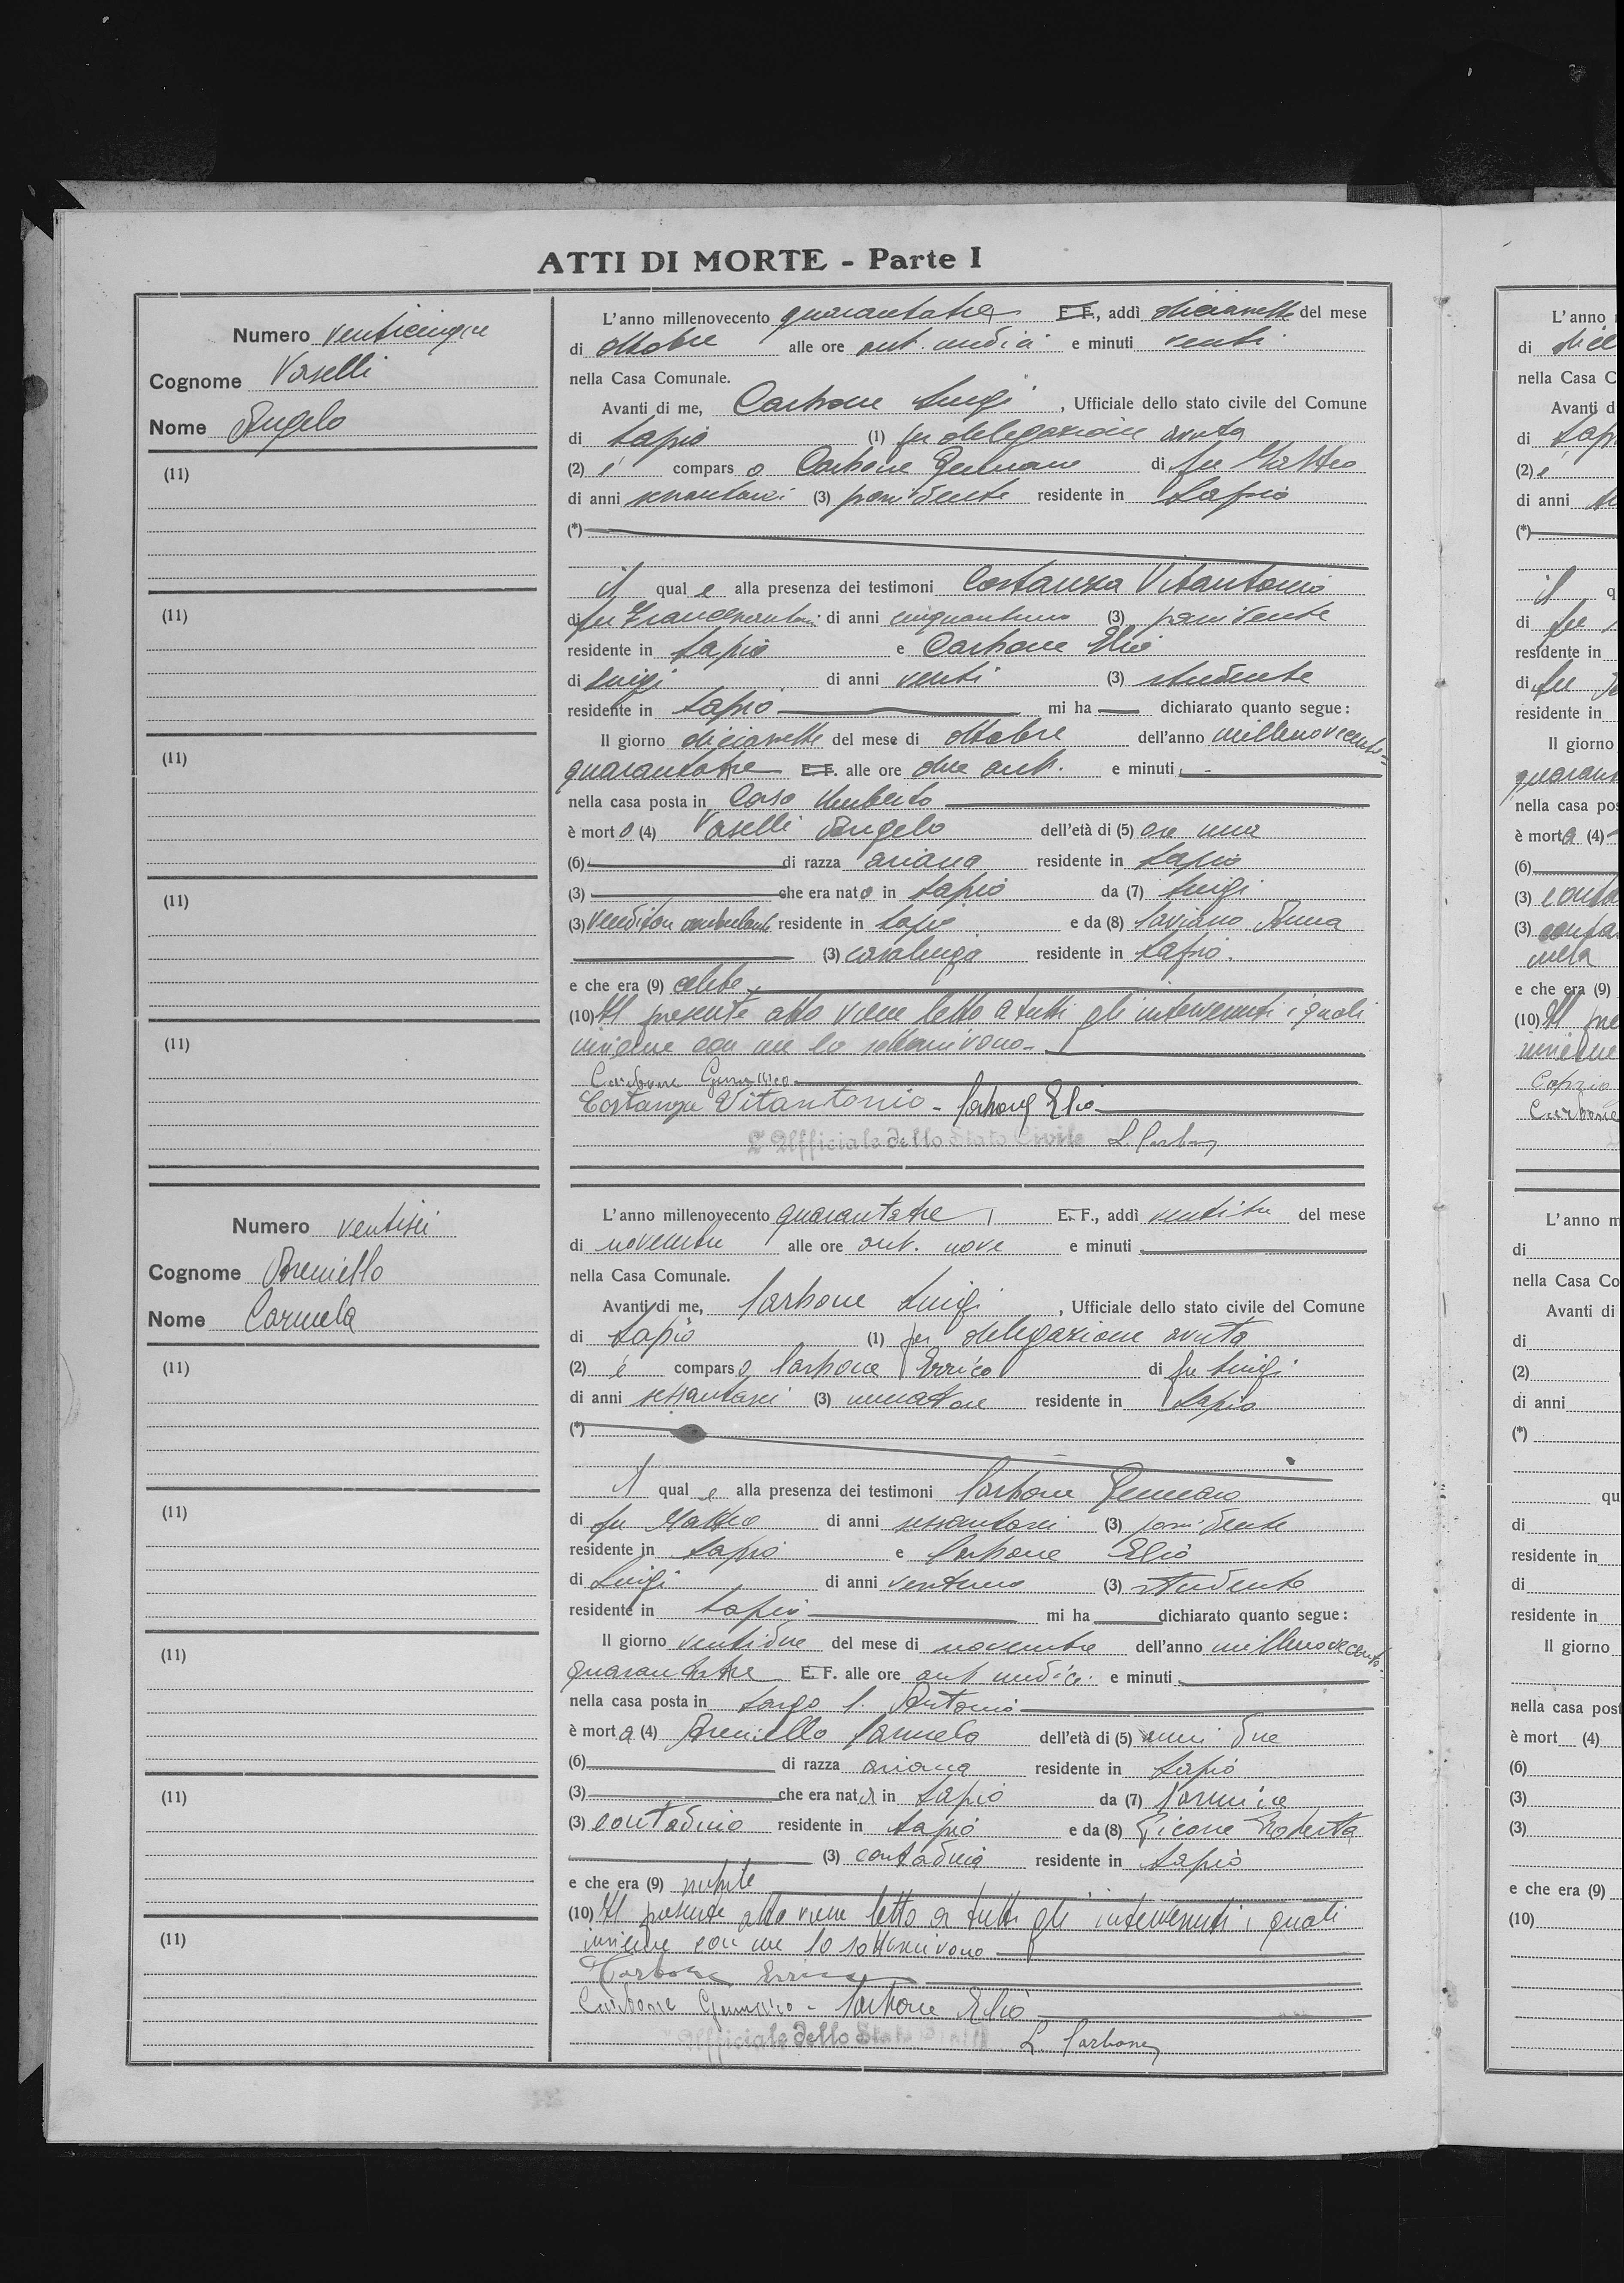 ATTI DI MORTE - Parte I
Numero venticinque
Cognome Vaselli
Nome Angelo
(11)
(11)
(11)
(11)
(11)
L'anno millenovecento quarantatre E.F., addì diciassette del mese
di ottobre alle ore ant. undici e minuti venti
nella Casa Comunale.
Avanti di me, Carbone Luigi, Ufficiale dello stato civile del Comune
di Lapio (1) per delegazione avuta
(2) è comparso Carbone Gennaro di fu Matteo
di anni sessantasei (3) possidente residente in Lapio
(*)
il quale alla presenza dei testimoni Costanza Vitantonio
di fu Francescantonio di anni cinquantuno (3) possidente
residente in Lapio e Carbone Elio
di Luigi di anni venti (3) studente
residente in Lapio mi ha dichiarato quanto segue:
Il giorno diciassette del mese di ottobre dell'anno millenovecento=
quarantatre E.F. alle ore due ant. e minuti
nella casa posta in Corso Umberto
è morto (4) Vaselli Angelo dell'età di (5) ore una
(6) di razza ariana residente in Lapio
(3) che era nato in Lapio da (7) Luigi
(3) venditore ambulante residente in Lapio e da (8) Saviano Anna
(3) casalinga residente in Lapio.
e che era (9) celibe.
(10) Il presente atto viene letto a tutti gli intervenuti i quali
insieme con me lo sottoscrivono.
Carbone Gennaro
Costanza Vitantonio - Carbone Elio
L'Ufficiale dello Stato Civile L. Carbone
Numero ventisei
Cognome
Nome Carmela
(11)
(11)
(11)
(11)
(11)
L'anno millenovecento quarantatre E.F., addì ventitre del mese
di novembre alle ore ant. nove e minuti
nella Casa Comunale.
Avanti di me, Carbone Luigi, Ufficiale dello stato civile del Comune
di Lapio (1) per delegazione avuta
(2) è comparso Carbone Errico di fu Luigi
di anni sessantasei (3) residente in Lapio
(*)
il quale alla presenza dei testimoni Carbone Gennaro
di fu Matteo di anni sessantasei (3) possidente
residente in Lapio e Carbone Elio
di Luigi di anni ventuno (3) studente
residente in Lapio mi ha dichiarato quanto segue:
Il giorno ventidue del mese di novembre dell'anno millenovecento-
quarantatre E.F. alle ore ant. undici e minuti
nella casa posta in Largo S. Antonio
è morta (4) Carmela dell'età di (5) anni due
(6) di razza ariana residente in Lapio
(3) che era nata in Lapio da (7) Carmine
(3) contadino residente in Lapio e da (8) Roberta
(3) contadina residente in Lapio
e che era (9) nubile
(10) Il presente atto viene letto a tutti gli intervenuti i quali
insieme con me lo sottoscrivono
Carbone Errico
Carbone Gennaro - Carbone Elio
L'Ufficiale dello Stato Civile L. Carbone
L'anno
di
nella Casa C
Avanti d
di Lapi
(2) è
di anni
(*)
il q
di fu
residente in
di fu
residente in
Il giorno
quarant
nella casa pos
è morta (4)
(6)
(3)
(3)
nella
e che era (9)
(10) Il pre
insieme
Carbone
L'anno m
di
nella Casa Co
Avanti di
di
(2)
di anni
(*)
qu
di
residente in
di
residente in
Il giorno
nella casa post
è mort (4)
(6)
(3)
(3)
e che era (9)
(10)